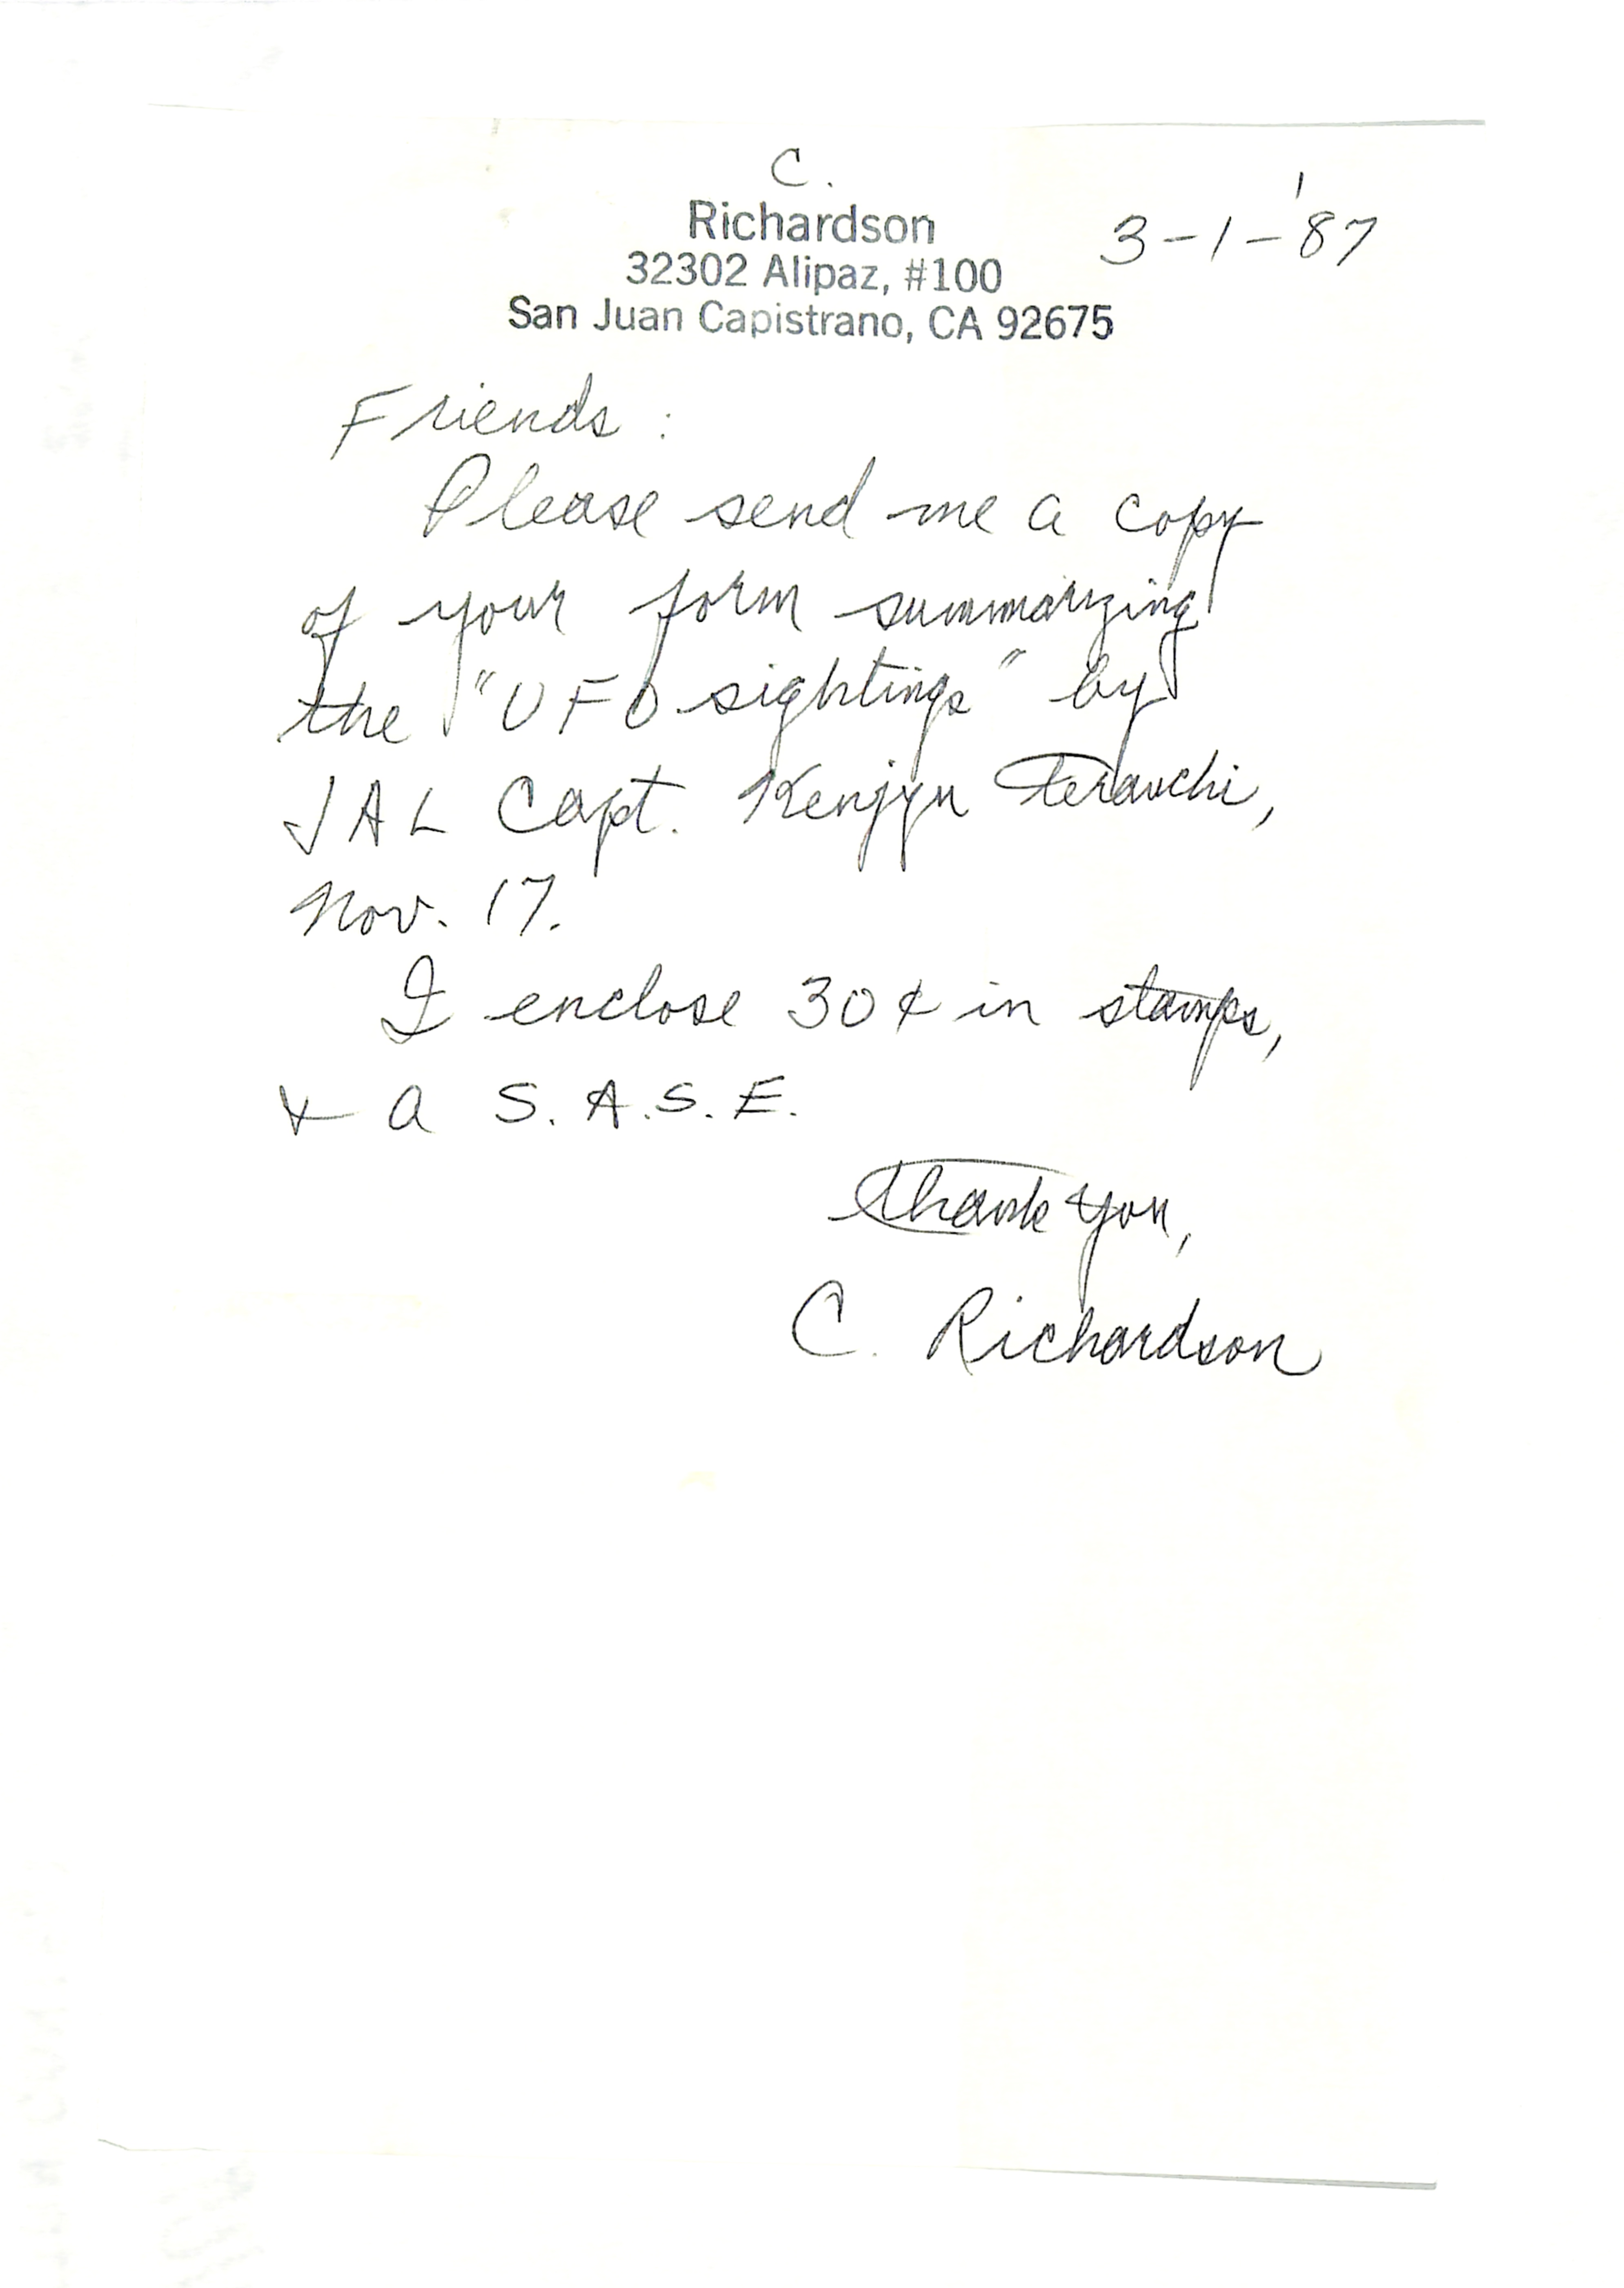 C.
Richardson
32302 Alipaz, #100
San Juan Capistrano, CA 92675
3-1-'87
Friends:
Please send me a copy
of your form summarizing
the "UFO sightings" by
JAL Capt. Kenjyu Terauchi,
Nov. 17.
I enclose 30¢ in stamps,
& a S.A.S.E.
Thank you,
C. Richardson